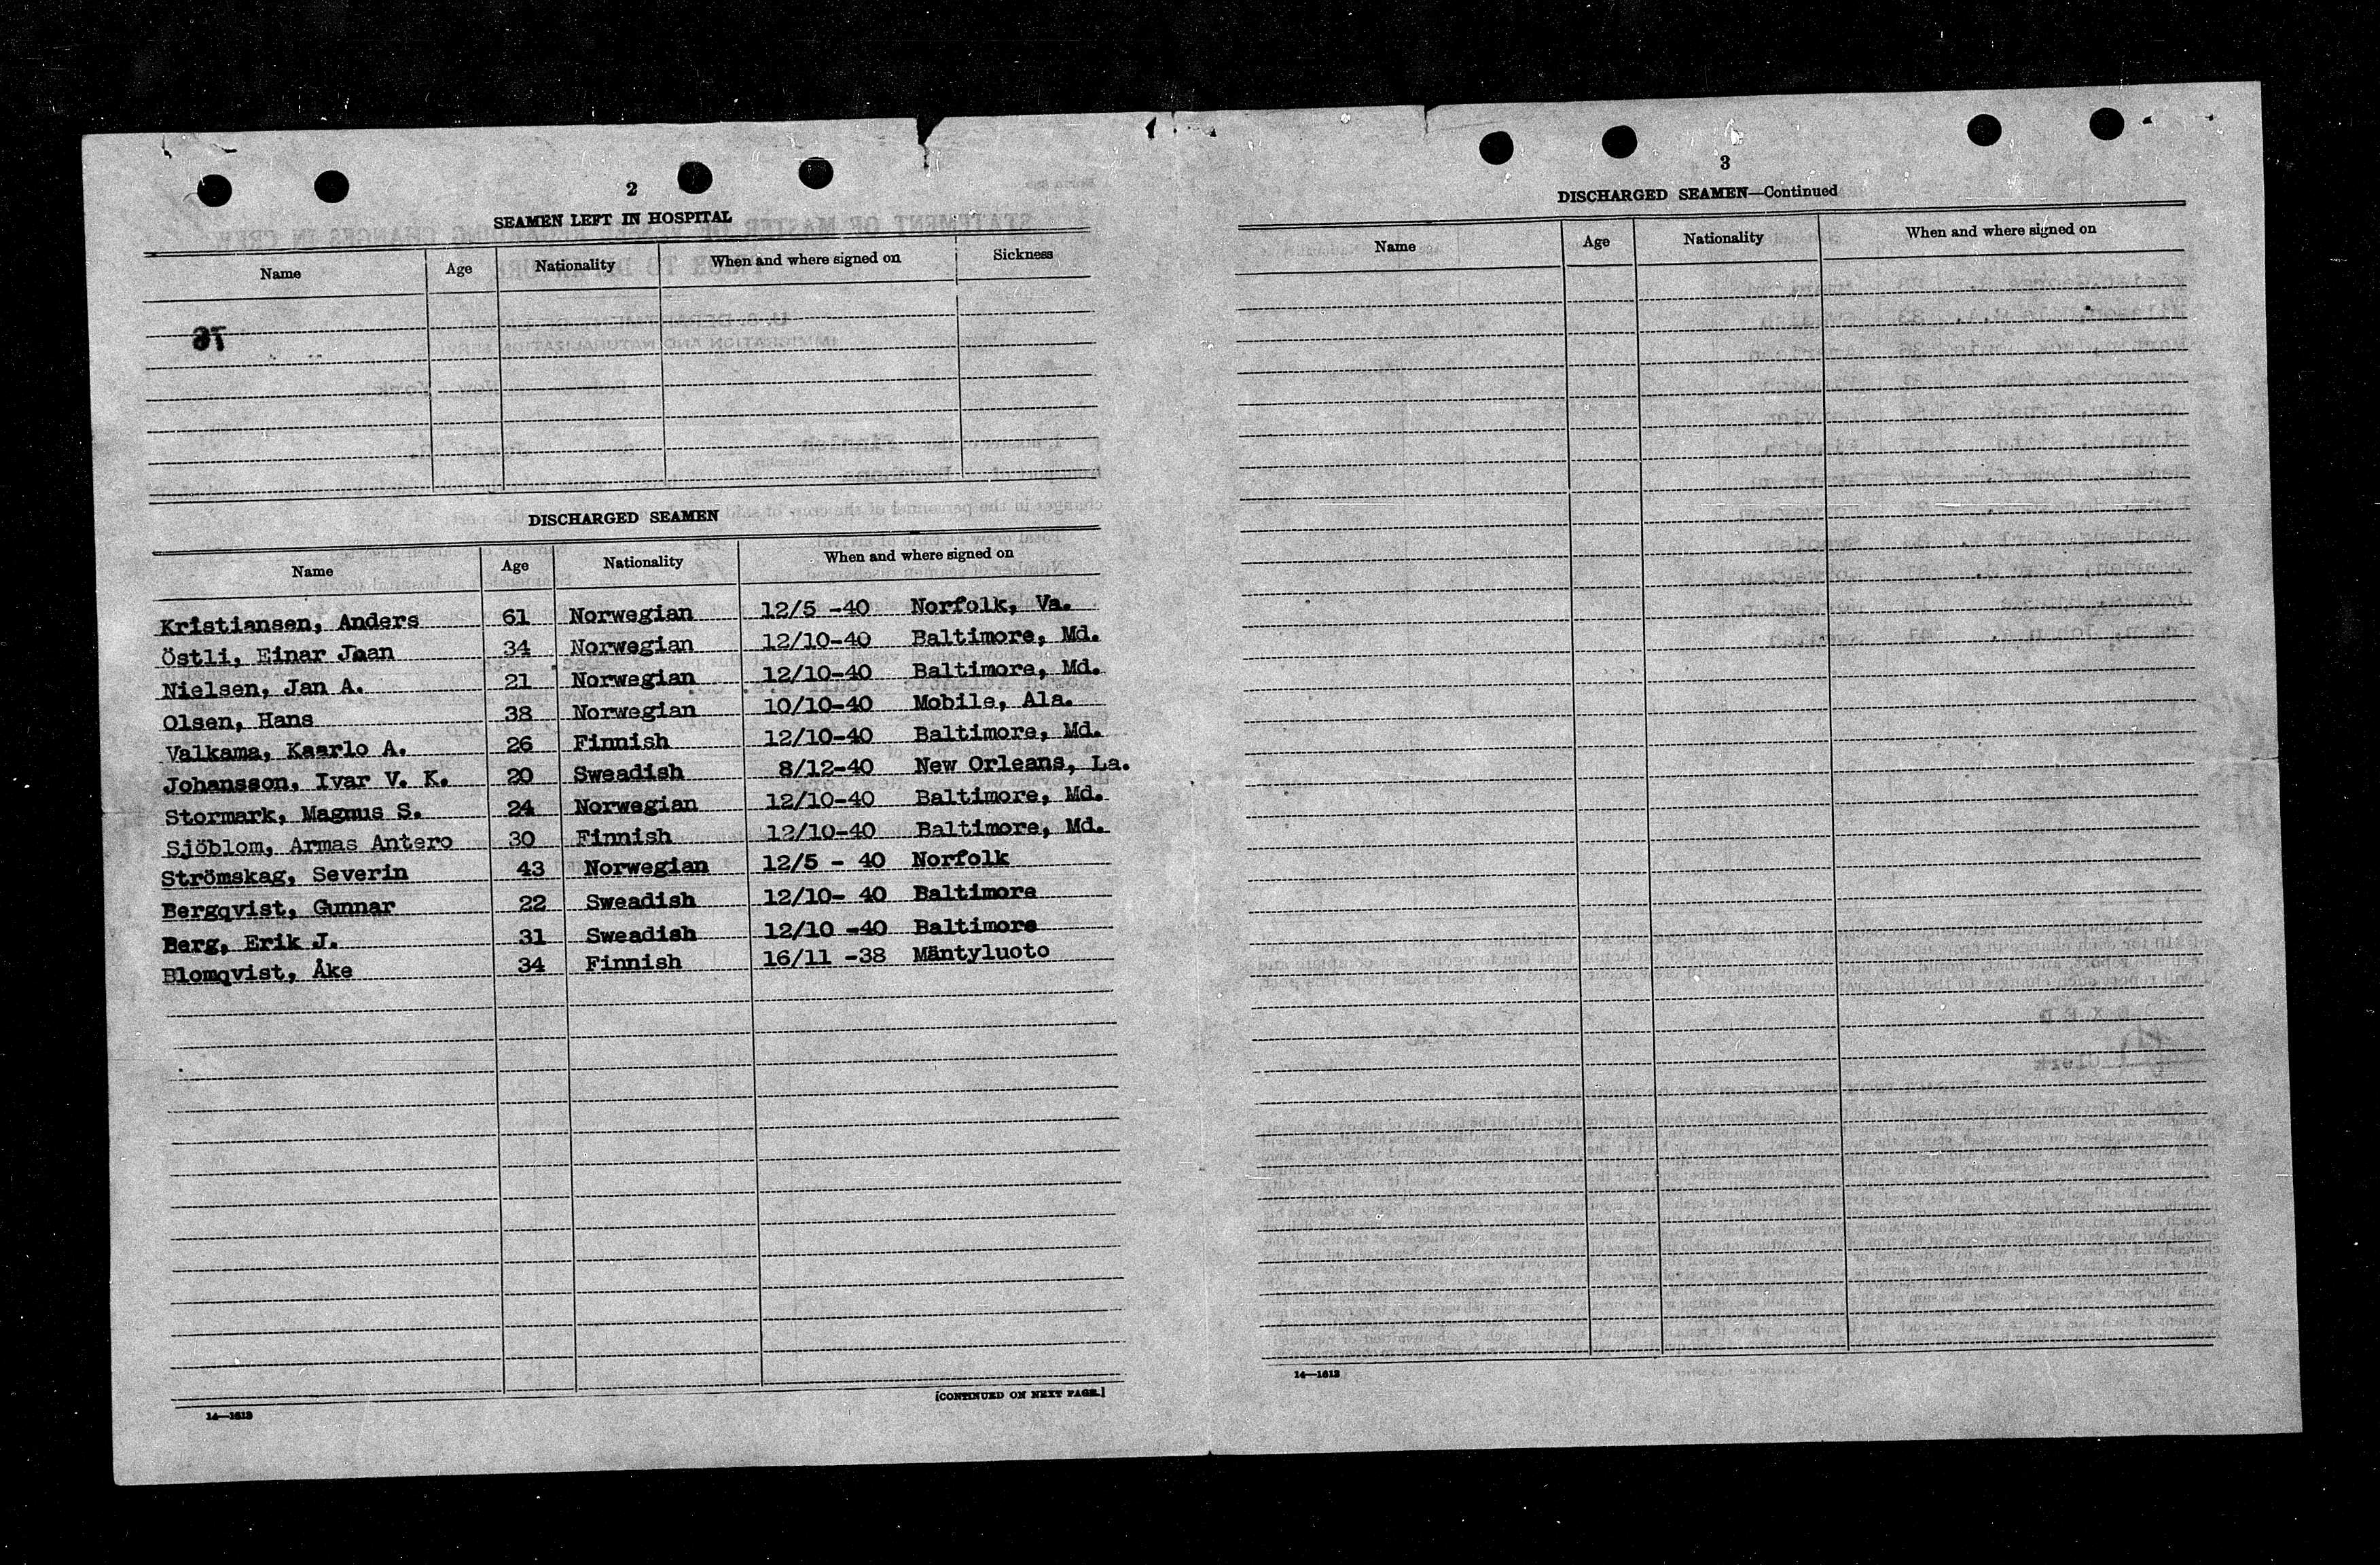 2
SEAMEN LEFT IN HOSPITAL
Name Age Nationality When and where signed on Sickness
76
DISCHARGED SEAMEN
Name Age Nationality When and where signed on
Kristiansen, Anders 61 Norwegian 12/5 -40 Norfolk, Va.
Östli, Einar Joan 34 Norwegian 12/10-40 Baltimore, Md.
Nielsen, Jan A. 21 Norwegian 12/10-40 Baltimore, Md.
Olsen, Hans 38 Norwegian 10/10-40 Mobile, Ala.
Valkama, Kaarlo A. 26 Finnish 12/10-40 Baltimore, Md.
Johansson, Ivar V. K. 20 Sweadish 8/12-40 New Orleans, La.
Stormark, Magnus S. 24 Norwegian 12/10-40 Baltimore, Md.
Sjöblom, Armas Antero 30 Finnish 12/10-40 Baltimore, Md.
Strömskag, Severin 43 Norwegian 12/5 - 40 Norfolk
Bergqvist, Gunnar 22 Sweadish 12/10- 40 Baltimore
Berg, Erik J. 31 Sweadish 12/10 -40 Baltimore
Blomqvist, Åke 34 Finnish 16/11 -38 Mäntyluoto
[CONTINUED ON NEXT PAGE.]
14—1613
3
DISCHARGED SEAMEN—Continued
Name Age Nationality When and where signed on
14—1613